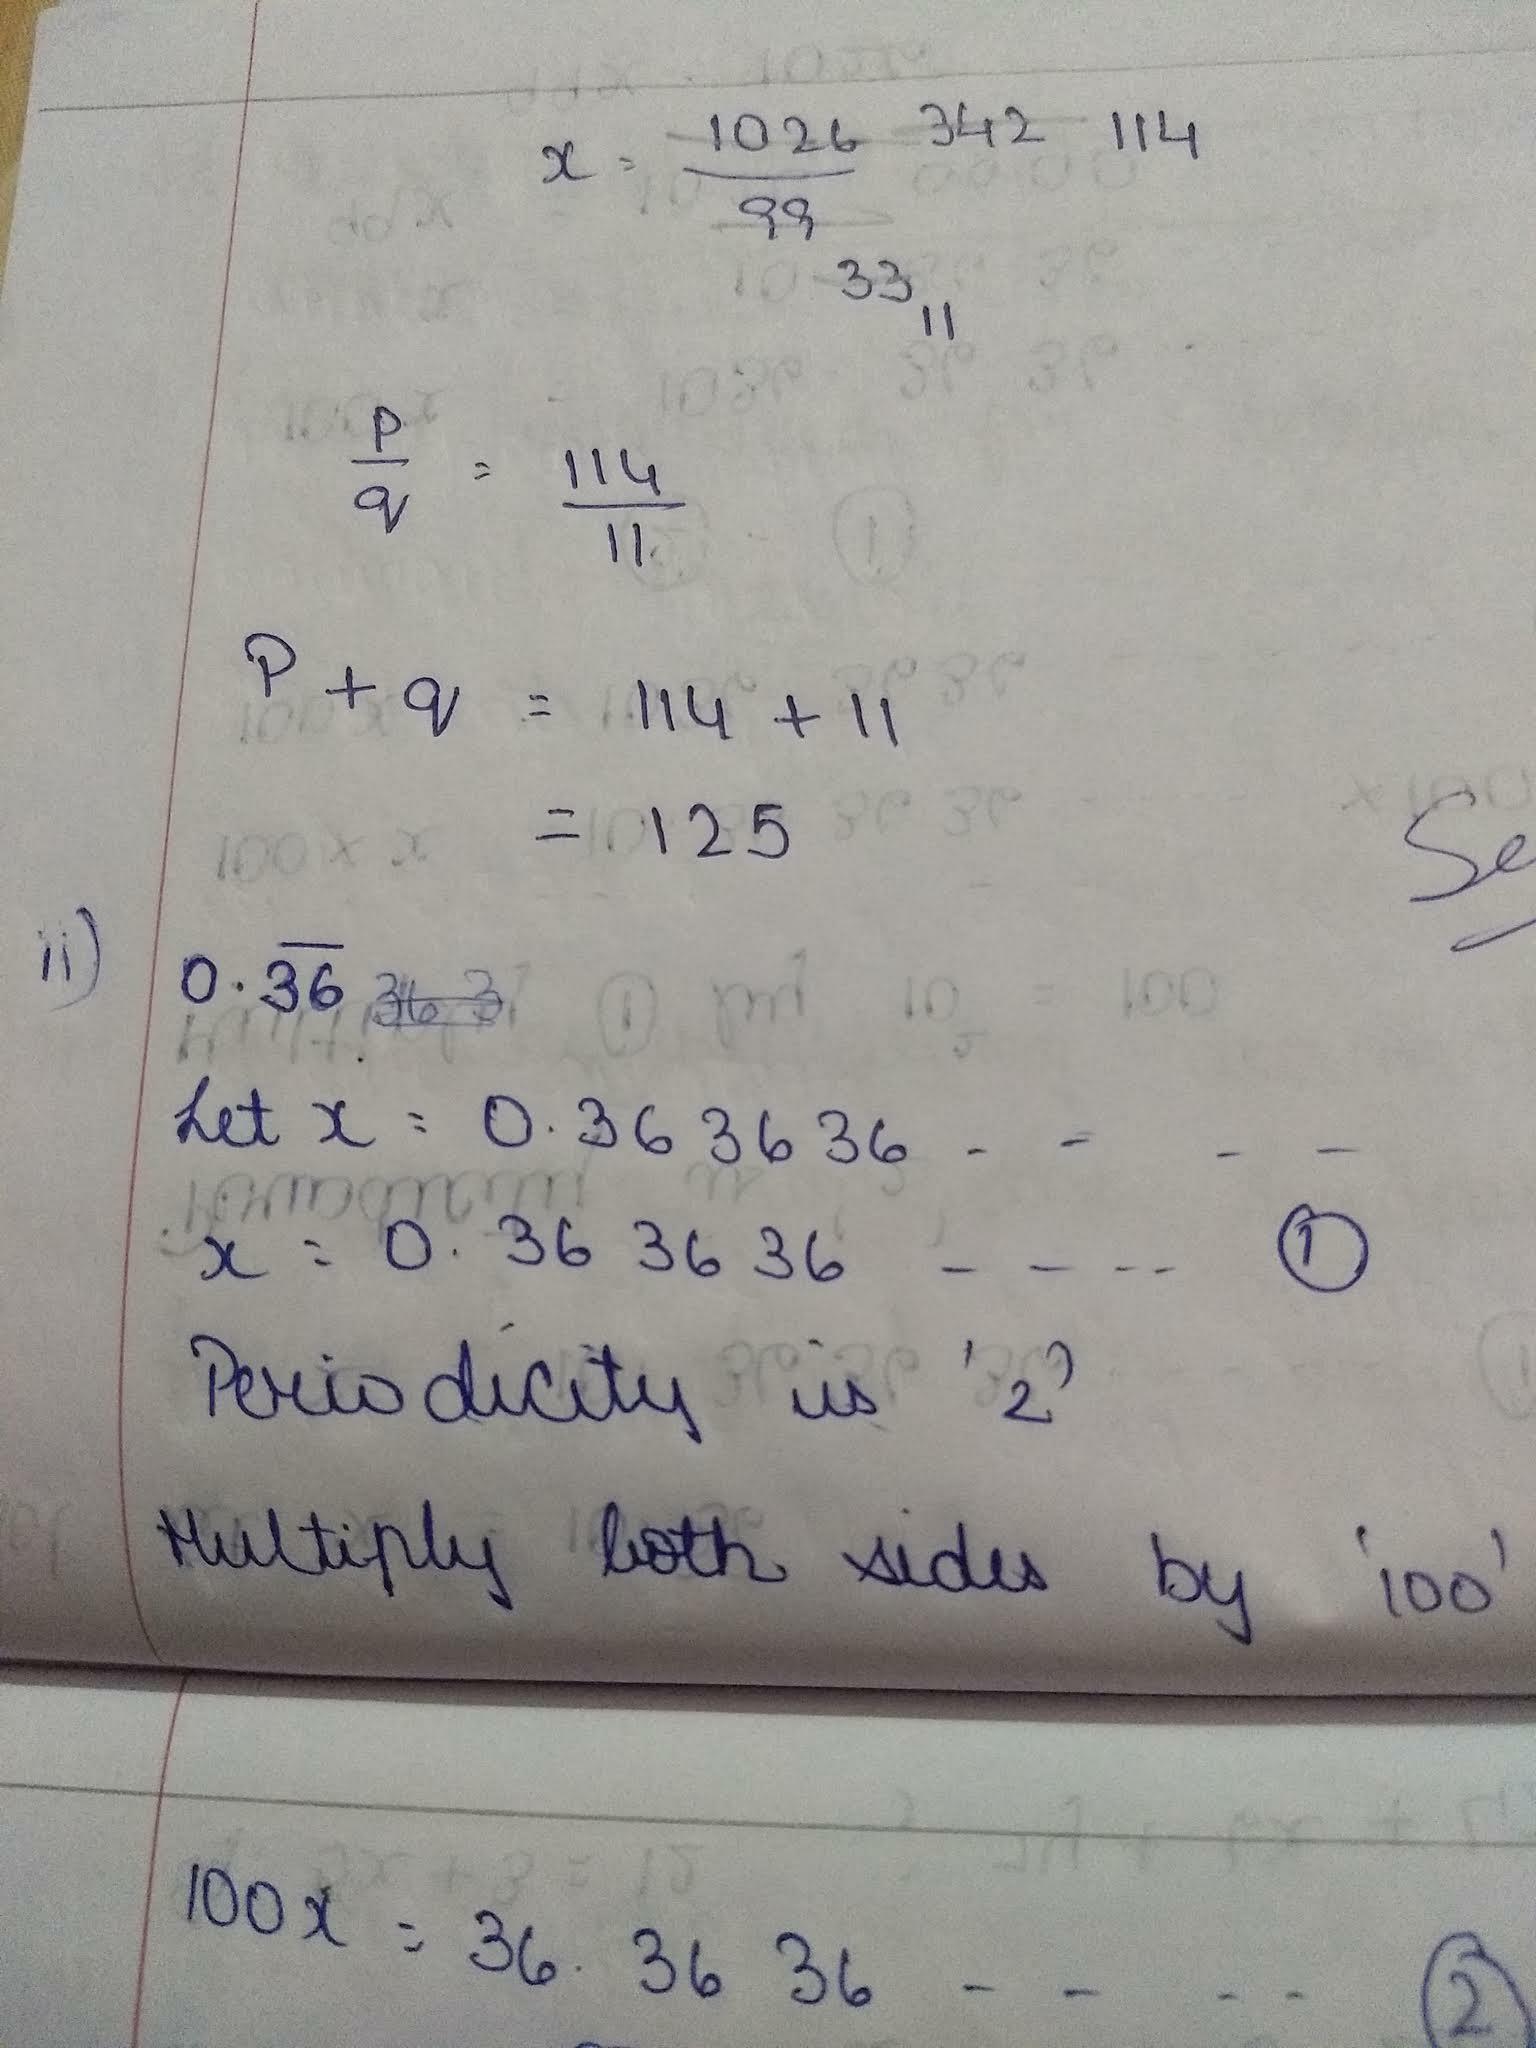 x = 1026 342 114
99
33
11
p/q = 114/11
P + q = 114 + 11
= 125
Se
ii) 0.3̅6̅
Let x = 0.36 36 36 - - - -
x = 0. 36 36 36 - - - - ①
Periodicity is '2'
Multiply both sides by '100'
100x = 36. 36 36 - - - - ②